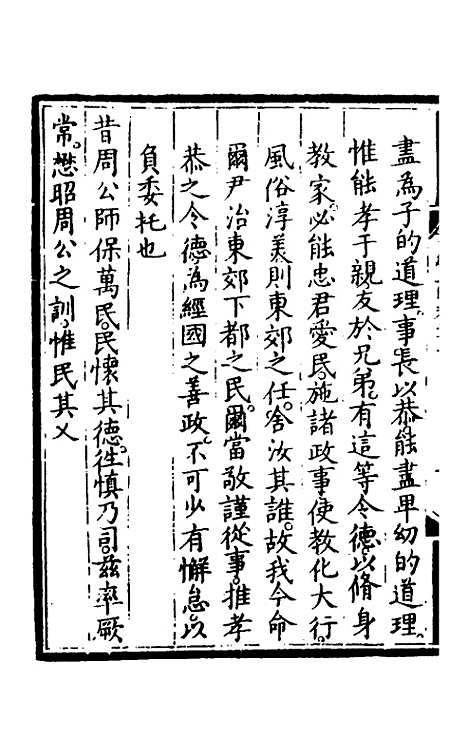 盡為子的道理。事長以恭。能盡卑幼的道理。
惟能孝于親。友於兄弟。有這等令德。以脩身
教家。必能忠君愛民。施諸政事。使教化大行。
風俗淳美。則東郊之任。舍汝其誰。故我今命
爾尹治東郊下都之民。爾當敬謹從事。推孝
恭之令德。為經國之善政。不可少有懈怠。以
負委托也
昔周公師保萬民。民懷其德。往慎乃司。茲率厥
常。懋昭周公之訓。惟民其乂